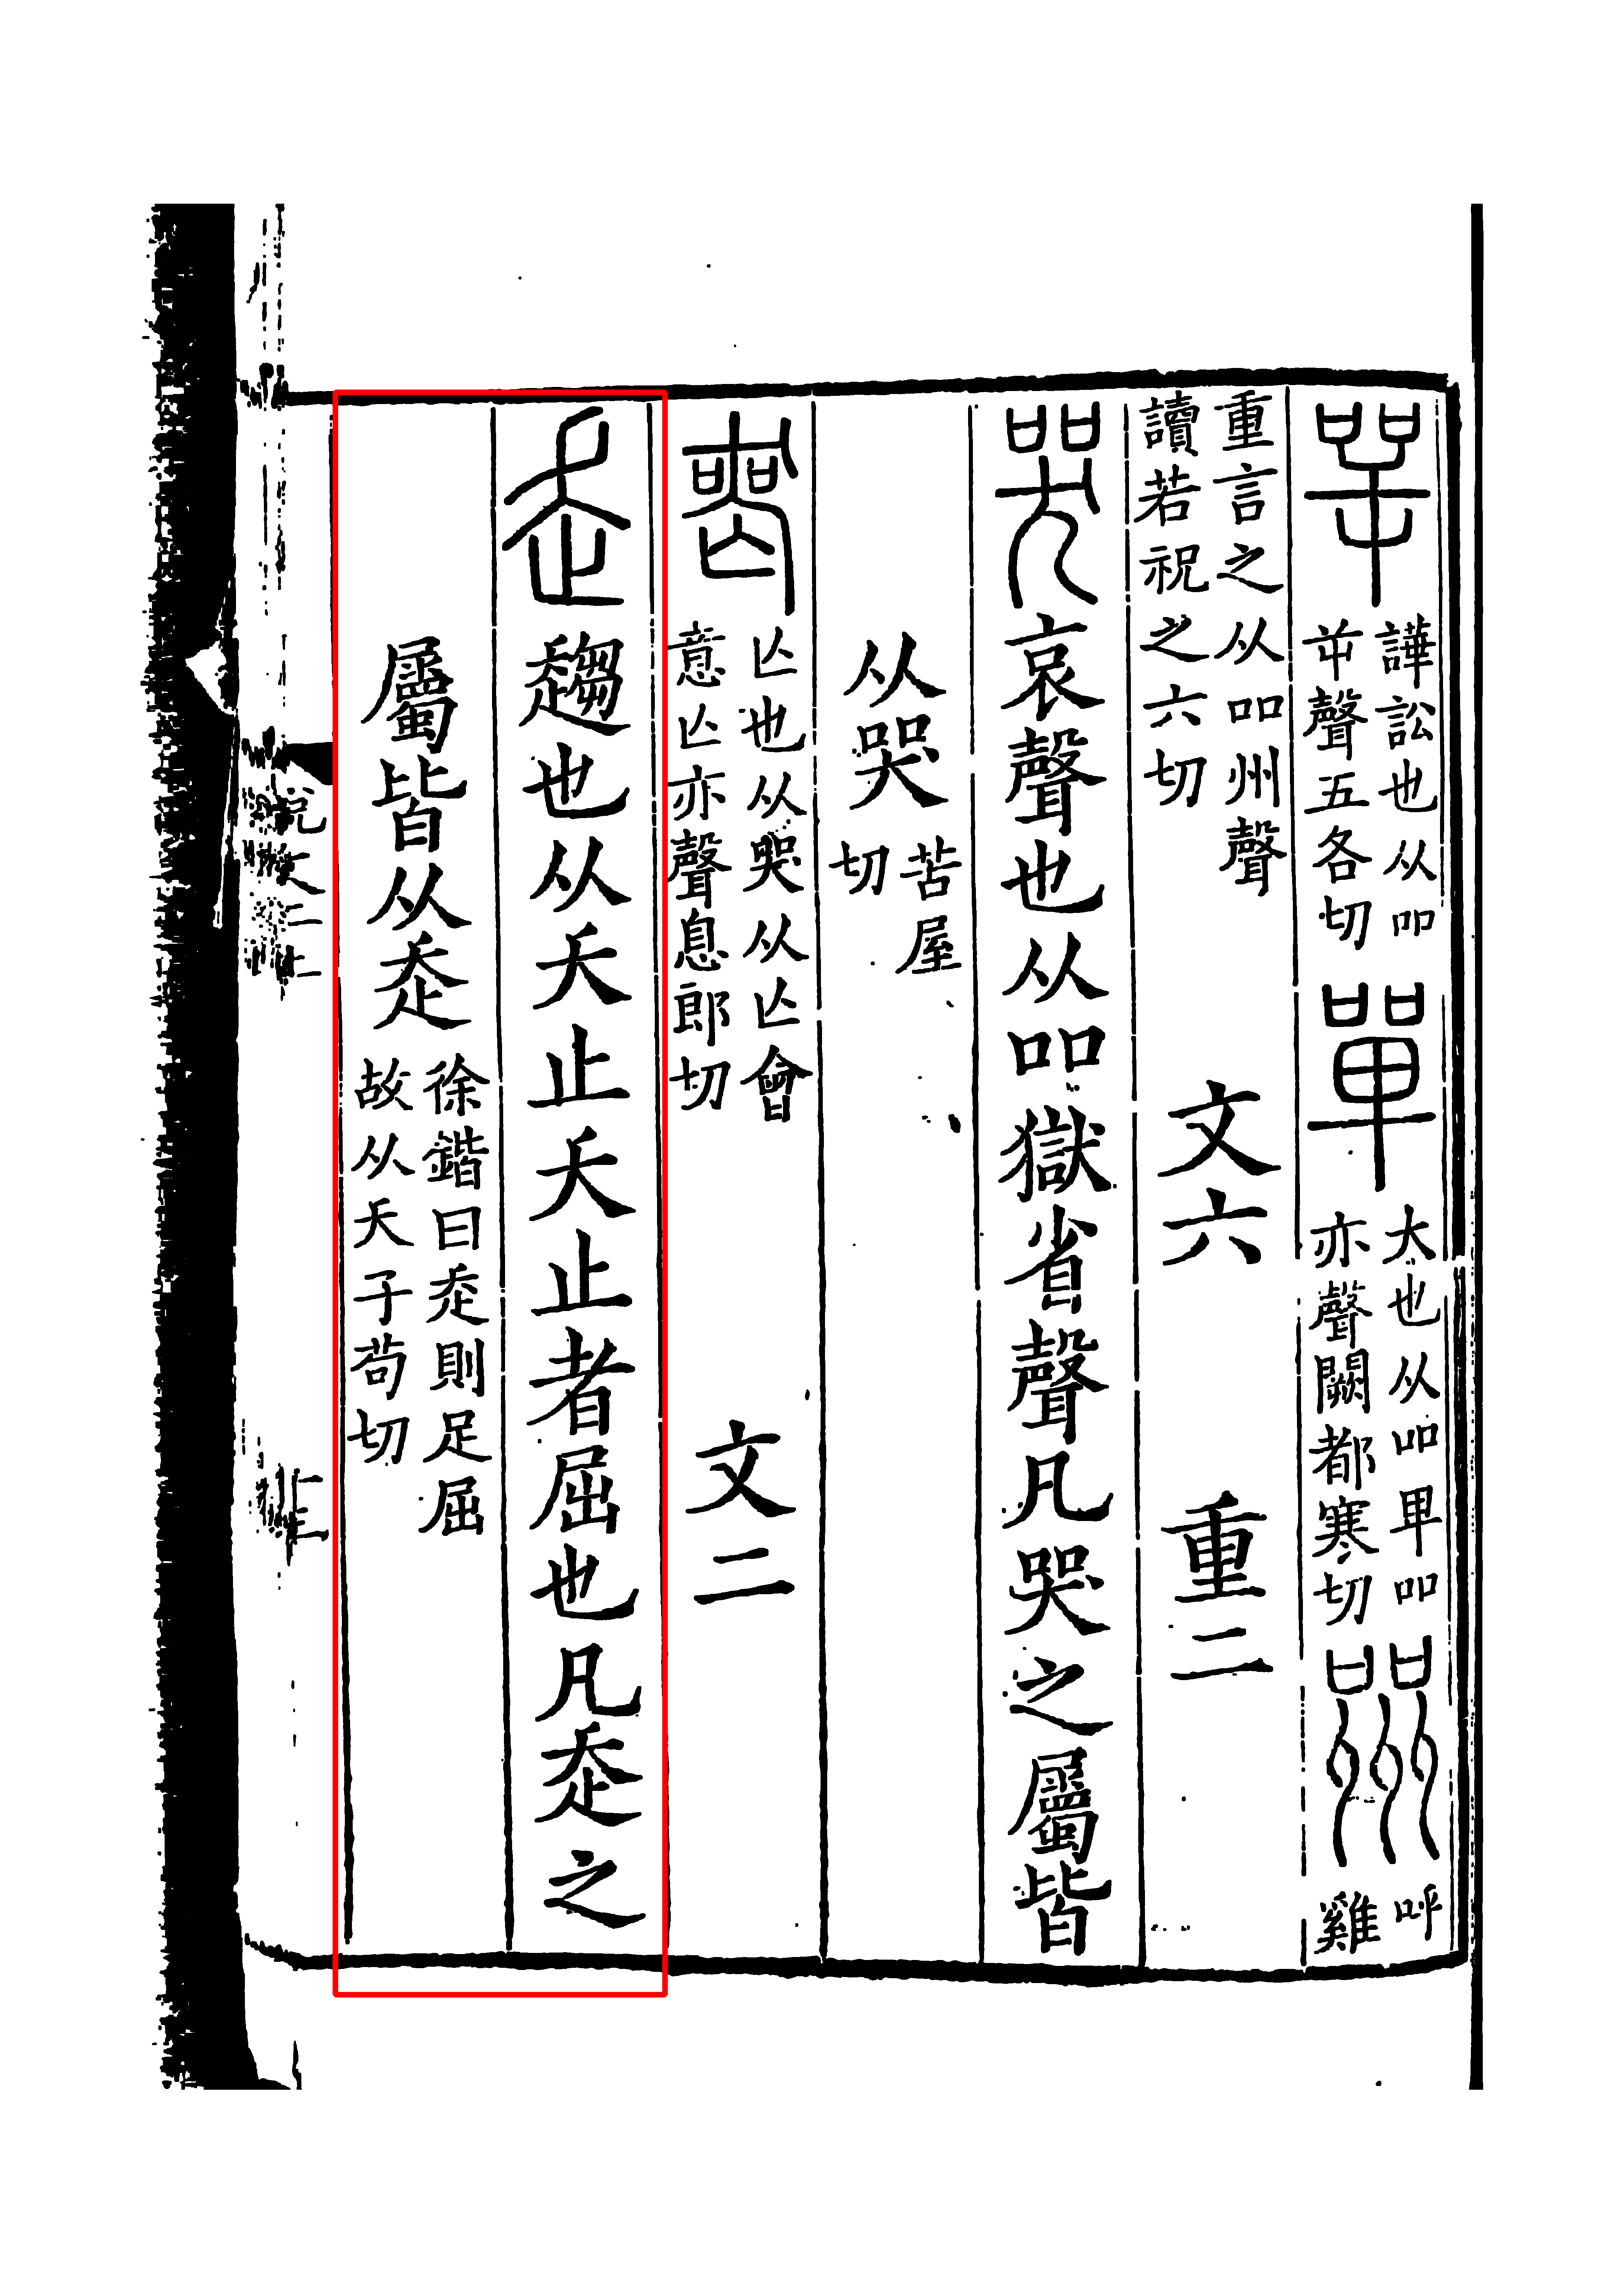 𠱠譁訟也从吅
屰聲五各切單大也从吅𠦒吅
亦聲闕都寒切喌呼雞
重言之从吅州聲
讀若祝之六切 文六 重二
哭哀聲也从吅獄省聲凡哭之屬皆
从哭苦屋切
喪亾也从哭从亾會
意亾亦聲息郎切 文二
𧺆趨也从夭止夭止者屈也凡𧺆之
屬皆从𧺆徐鍇曰𧺆則足屈
故从夭子苟切
說文二上